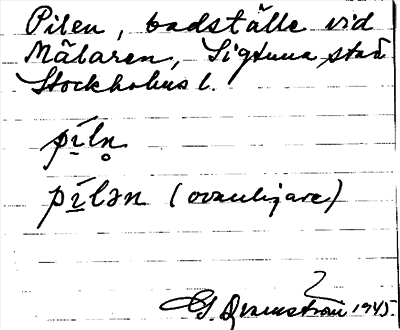 Pilen, badställe vid
Mälaren, Sigtuna stad
Stockholms l.
pí̲ln̥
pí̲lən (ovanligare)
1945.